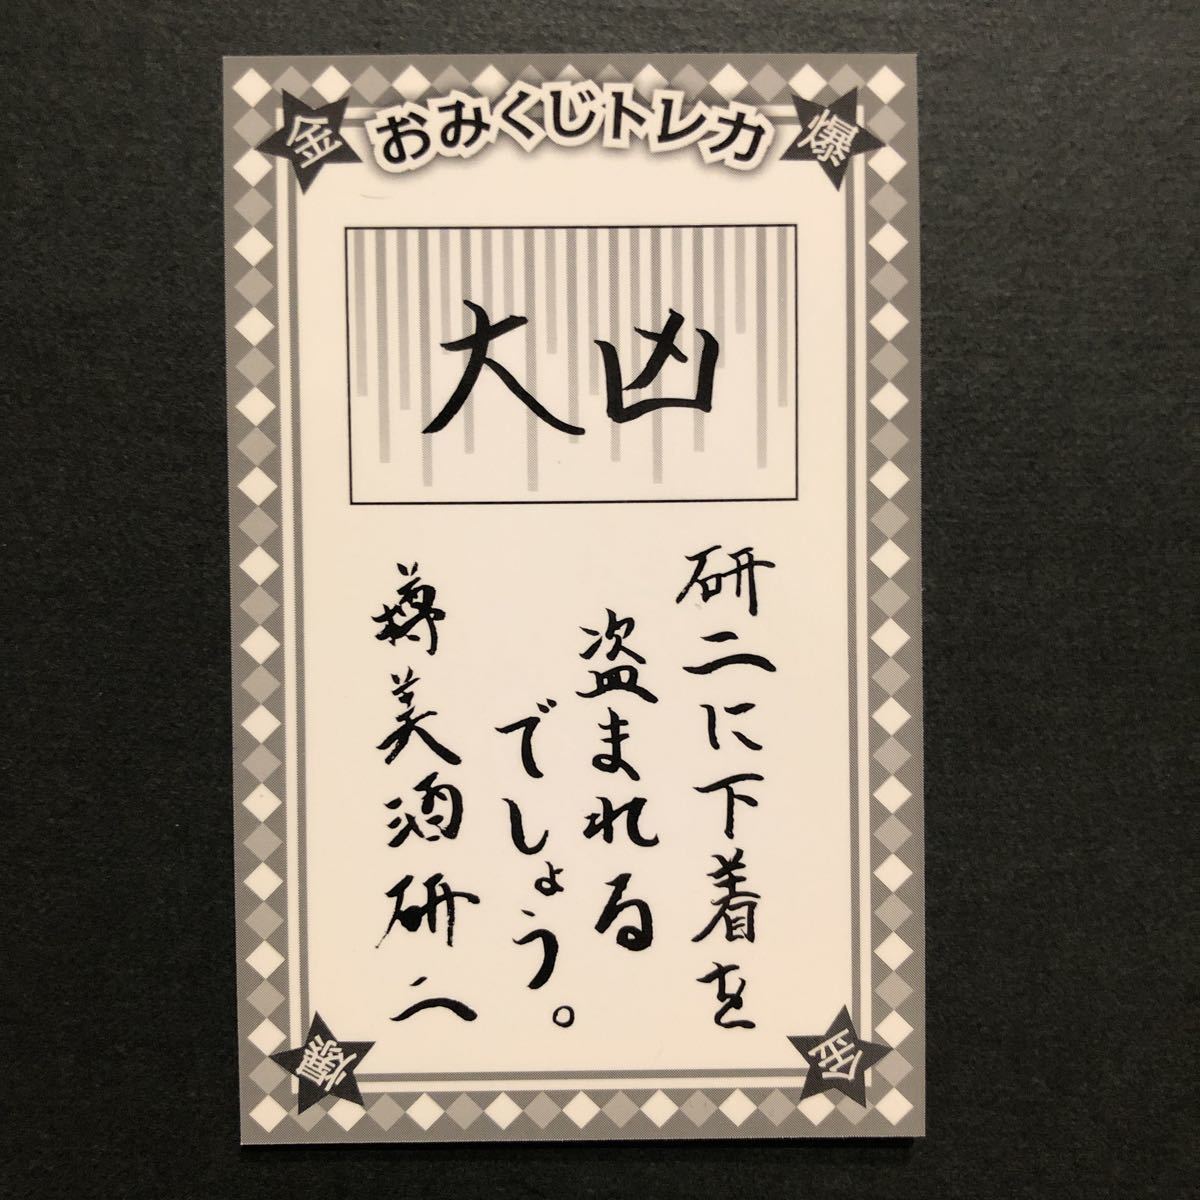 金
おみくじトレカ
爆
大凶
研二に下着を
盗まれる
でしょう。
樽美酒研二
爆
金